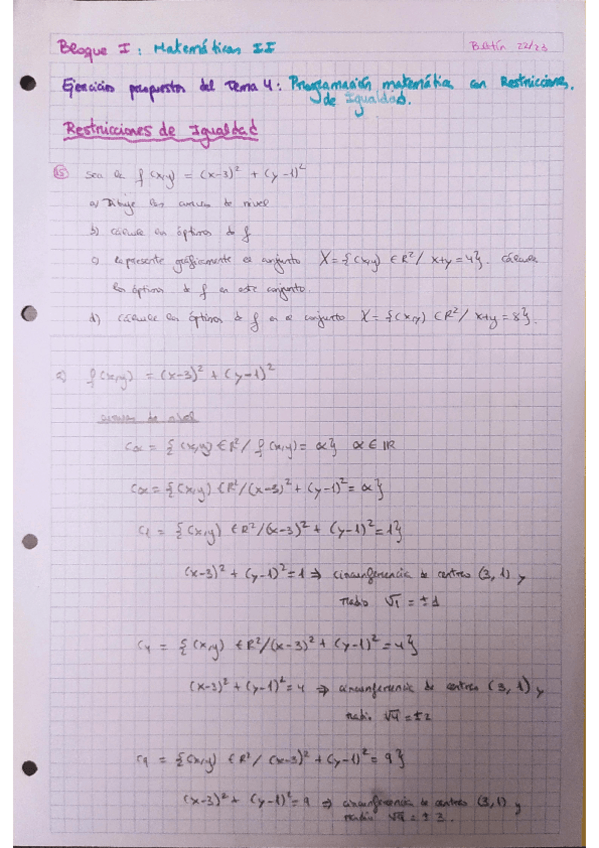 Bloque I: Matemáticas II
Boletín 22/23
Ejercicios propuestos del Tema 4: Programación matemática con Restricciones
de Igualdad.
Restricciones de Igualdad
15 Sea la f(x,y) = (x-3)² + (y-1)²
a) Dibuje las curvas de nivel
b) Calcule los óptimos de f
c) Represente gráficamente el conjunto X={(x,y) ∈ R²/ x+y=4}. Calcule
los óptimos de f en este conjunto.
d) Calcule los óptimos de f en el conjunto X={(x,y) ∈ R²/ x+y=8}.
a) f(x,y) = (x-3)² + (y-1)²
curvas de nivel
Cα = {(x,y) ∈ R²/ f(x,y) = α} α ∈ IR
Cα = {(x,y) ∈ R²/(x-3)² + (y-1)² = α}
C1 = {(x,y) ∈ R²/(x-3)² + (y-1)² = 1}
(x-3)² + (y-1)² = 1 ⇒ circunferencia de centro (3,1) y
radio √1 = ±1
C4 = {(x,y) ∈ R²/(x-3)² + (y-1)² = 4}
(x-3)² + (y-1)² = 4 ⇒ circunferencia de centro (3,1) y
radio √4 = ±2
C9 = {(x,y) ∈ R²/ (x-3)² + (y-1)² = 9}
(x-3)² + (y-1)² = 9 ⇒ circunferencia de centro (3,1) y
radio √9 = ±3.